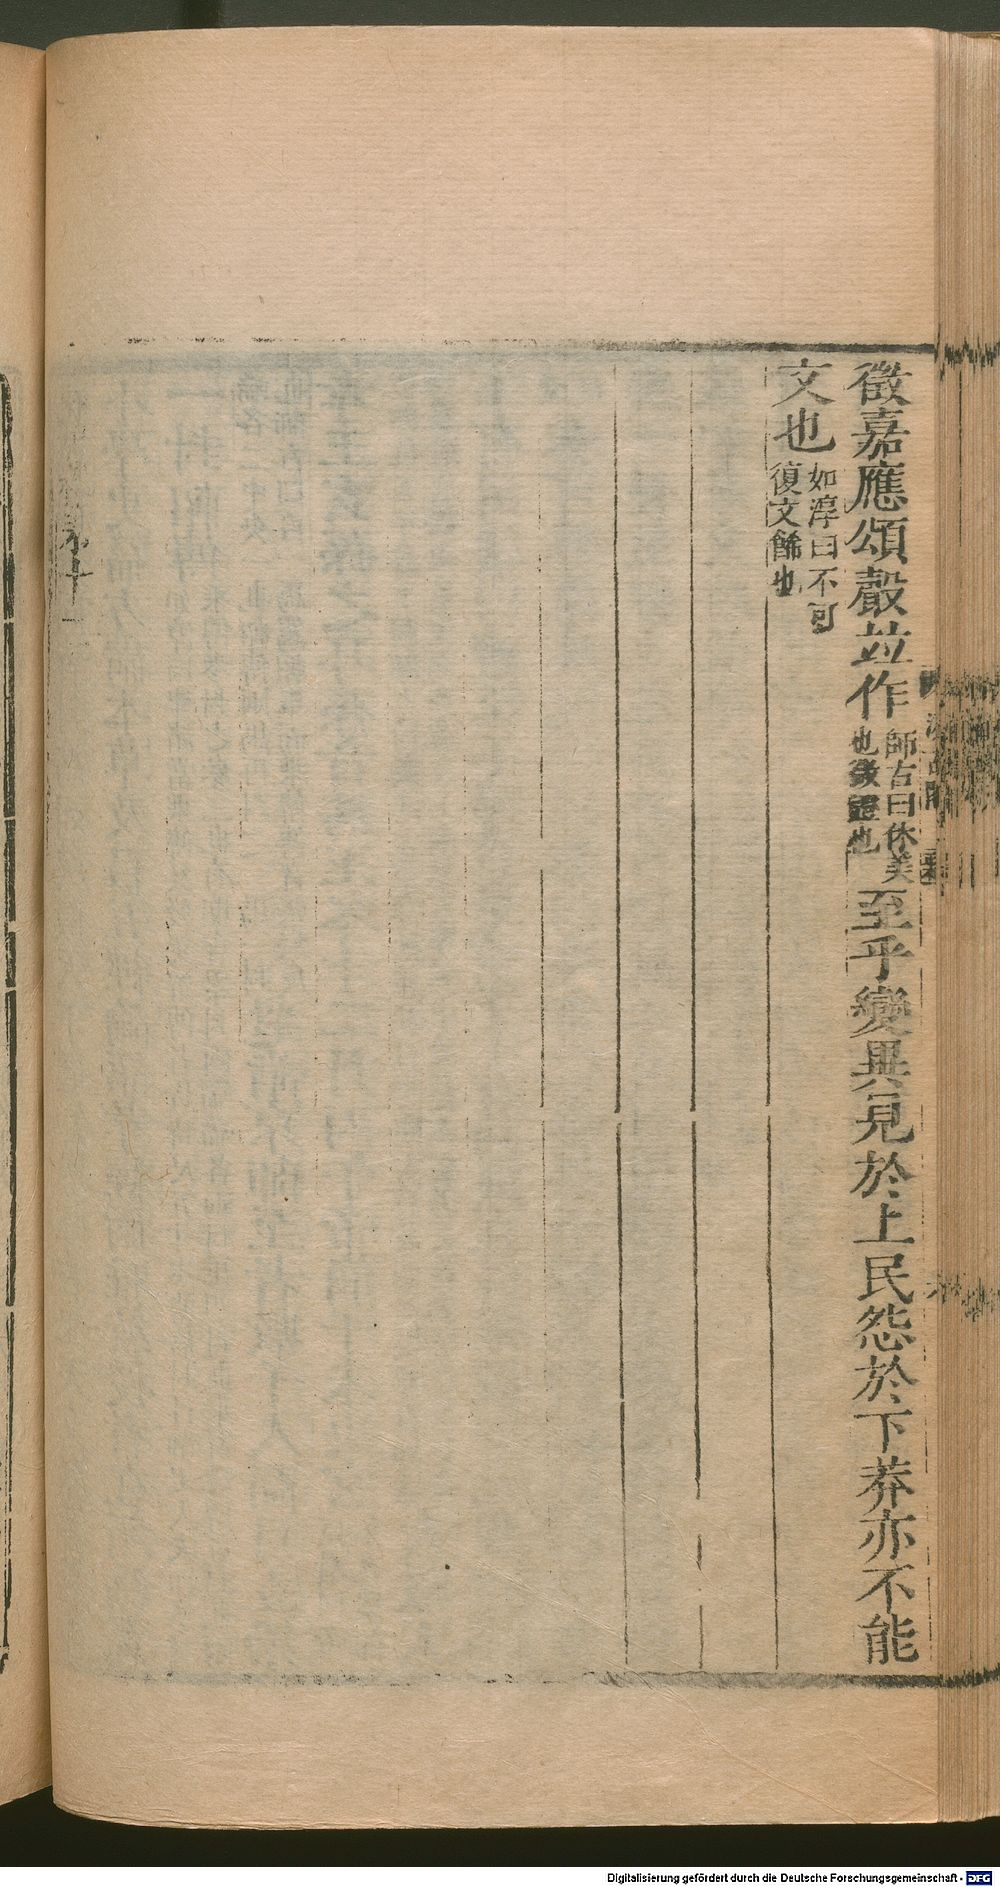 徵嘉應頌聲並作
師古曰休美
也徵證也
至乎變異見於上民怨於下莽亦不能
文也
如淳曰不可
復文飾也
Digitalisierung gefördert durch die Deutsche Forschungsgemeinschaft - DFG